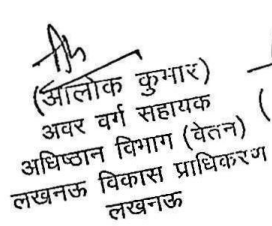 (आलोक कुमार)
अवर वर्ग सहायक
अधिष्ठान विभाग (वेतन) (
लखनऊ विकास प्राधिकरण
लखनऊ